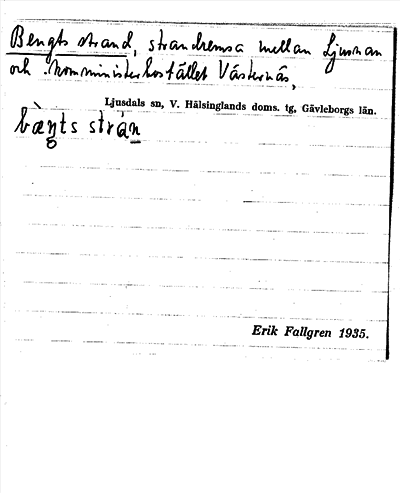 Bengts strand, strandremsa mellan Ljusnan
och komministerbostället Västernäs,
Ljusdals sn, V. Hälsinglands doms. tg, Gävleborgs län.
bæ̀ŋts stràn
Erik Fallgren 1935.